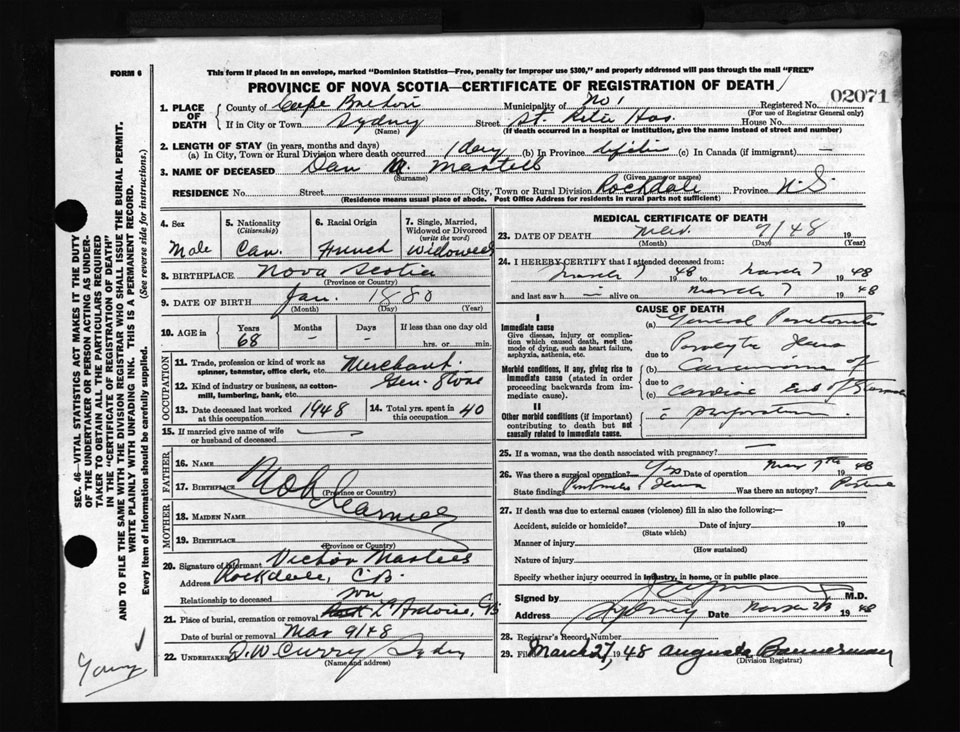 FORM 6
This form if placed in an envelope, marked "Dominion Statistics—Free, penalty for improper use $300," and properly addressed will pass through the mail "FREE"
PROVINCE OF NOVA SCOTIA—CERTIFICATE OF REGISTRATION OF DEATH
02071
1. PLACE OF DEATH
County of Cape Breton Municipality of No 1 Registered No.
(For use of Registrar General only)
If in City or Town Sydney Street St. Rita Hos. House No.
(Name) (If death occurred in a hospital or institution, give the name instead of street and number)
2. LENGTH OF STAY (in years, months and days)
(a) In City, Town or Rural Division where death occurred 1 day (b) In Province lifetime (c) In Canada (if immigrant) —
3. NAME OF DECEASED Dan M. Martell
(Surname) (Given name or names)
RESIDENCE No. Street City, Town or Rural Division Rockdale Province N.S.
(Residence means usual place of abode. Post Office Address for residents in rural parts not sufficient)
4. Sex
Male
5. Nationality
(Citizenship)
Can.
6. Racial Origin
French
7. Single, Married, Widowed or Divorced
(write the word)
Widowed
8. BIRTHPLACE Nova Scotia
(Province or Country)
9. DATE OF BIRTH Jan. 1880
(Month) (Day) (Year)
10. AGE in
Years
68
Months
–
Days
–
If less than one day old
hrs. or min.
OCCUPATION
11. Trade, profession or kind of work as spinner, teamster, office clerk, etc. Merchant
12. Kind of industry or business, as cotton-mill, lumbering, bank, etc. Gen. Store
13. Date deceased last worked at this occupation 1948
14. Total yrs. spent in this occupation 40
15. If married give name of wife or husband of deceased —
FATHER
16. Name
17. Birthplace
(Province or Country)
MOTHER
18. MAIDEN NAME
19. BIRTHPLACE
(Province or Country)
20. Signature of Informant Victor Martell
Address Rockdale, C.B.
Relationship to deceased son
21. Place of burial, cremation or removal L'Ardoise, CB
Date of burial or removal Mar 9/48
22. UNDERTAKER D.W. Curry Sydney
(Name and address)
MEDICAL CERTIFICATE OF DEATH
23. DATE OF DEATH Mar. 7/48 19
(Month) (Day) (Year)
24. I HEREBY CERTIFY that I attended deceased from:
March 7 1948 to March 7 1948
and last saw h— alive on March 7 1948
CAUSE OF DEATH
I
Immediate cause
Give disease, injury or complication which caused death, not the mode of dying, such as heart failure, asphyxia, asthenia, etc.
(a) General Peritonitis
due to
Morbid conditions, if any, giving rise to immediate cause (stated in order proceeding backwards from immediate cause).
(b) Carcinoma of
due to
(c) Cardiac End of Stomach
II
Other morbid conditions (if important) contributing to death but not causally related to immediate cause.
c perforation
25. If a woman, was the death associated with pregnancy? —
26. Was there a surgical operation? Yes Date of operation Mar 7th 1948
State findings Was there an autopsy?
27. If death was due to external causes (violence) fill in also the following:—
Accident, suicide or homicide? Date of injury 19
(State which)
Manner of injury
(How sustained)
Nature of injury
Specify whether injury occurred in industry, in home, or in public place
Signed by M.D.
Address Sydney Date 1948
28. Registrar's Record Number
29. Filed March 27, 1948 Augusta Bannerman
(Division Registrar)
SEC. 46—VITAL STATISTICS ACT MAKES IT THE DUTY
OF THE UNDERTAKER OR PERSON ACTING AS UNDER-
TAKER TO OBTAIN ALL THE PARTICULARS REQUIRED
IN THE "CERTIFICATE OF REGISTRATION OF DEATH"
AND TO FILE THE SAME WITH THE DIVISION REGISTRAR WHO SHALL ISSUE THE BURIAL PERMIT.
WRITE PLAINLY WITH UNFADING INK. THIS IS A PERMANENT RECORD.
Every item of information should be carefully supplied. (See reverse side for instructions.)